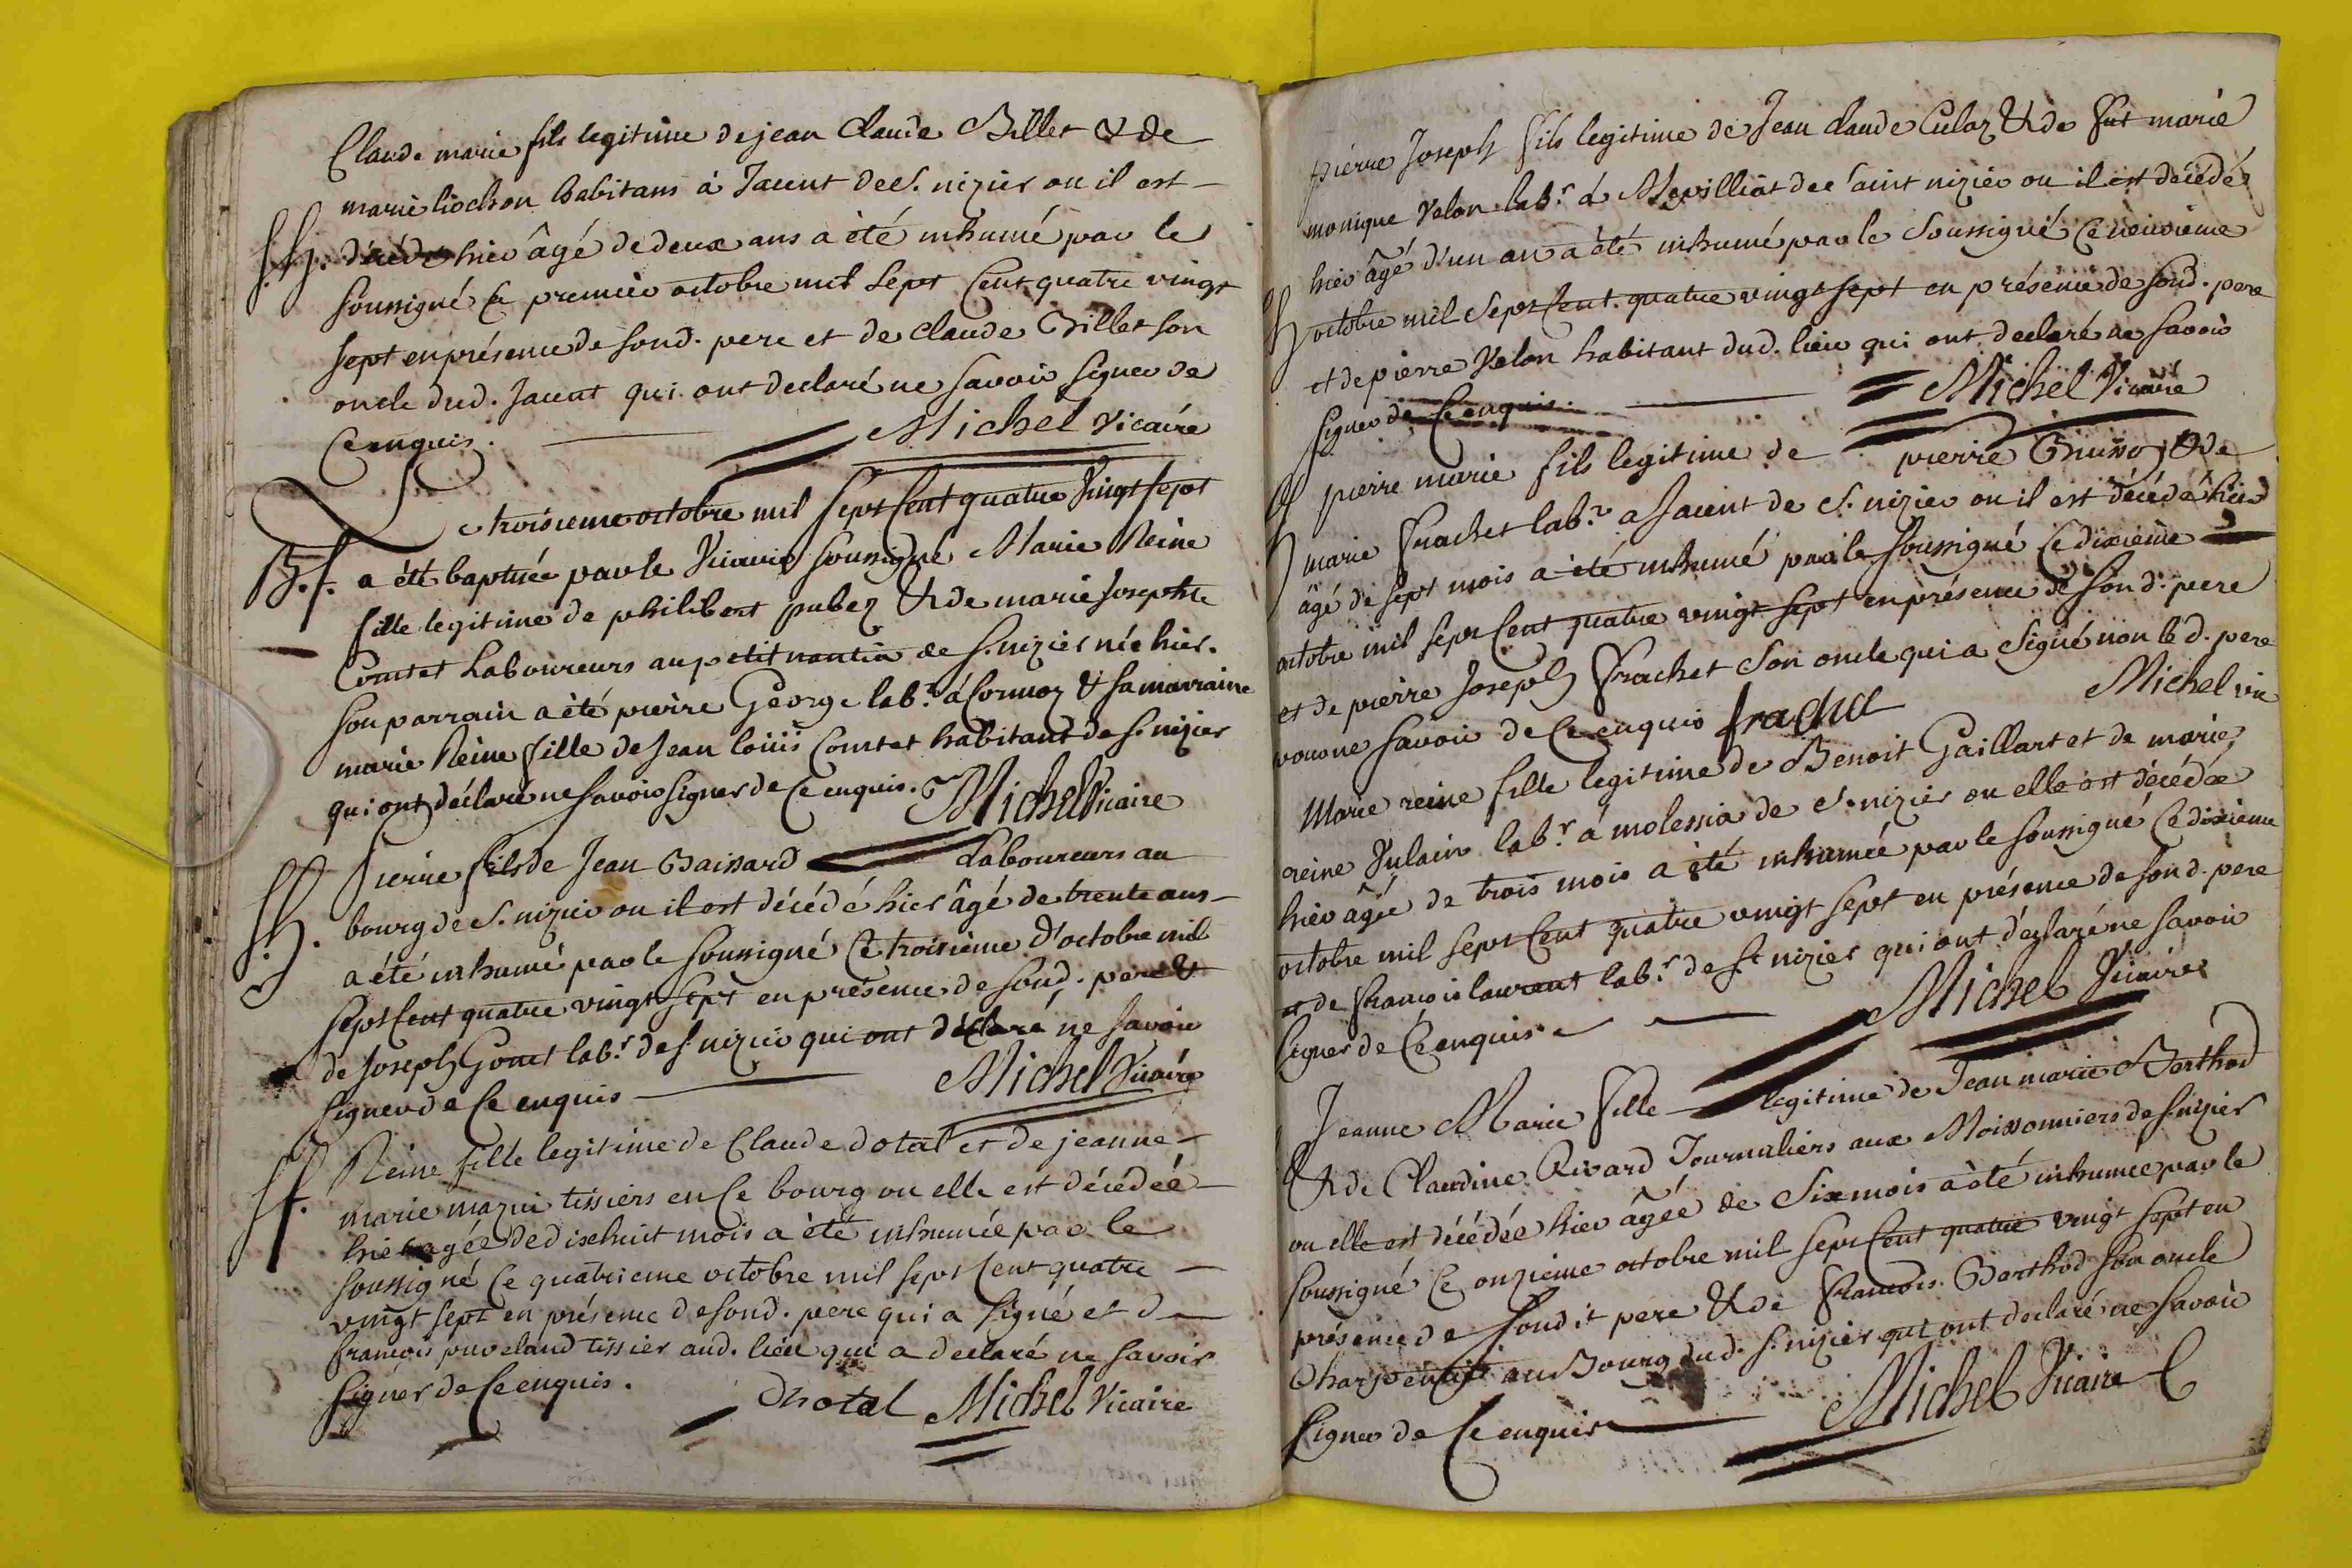 Claude marie fils legitime de jean Claude Billet & de
marie liochon habitans à Jacent de S. nizier ou il est
S.h. décédé hier âgé de deux ans a été inhumé par le
soussigné ce premier octobre mil sept cent quatre vingt
sept en présence de sond. pere et de claude Billet son
oncle dud. Jacent qui ont declaré ne savoir signer de
Ce enquis. Michel Vicaire
Le troisieme octobre mil sept cent quatre vingt sept
B.f. a été baptisée par le Vicaire soussigné Marie Reine
fille legitime de philibert pubez & de marie Josephte
Comtet Laboureurs au petit nantia de S. nizier née hier.
son parrain a été pierre George lab.r à Cormoz & sa marraine
marie Reine fille de Jean loüis Comtet habitant de S. nizier
qui ont déclaré ne savoir signer de Ce enquis. Michel Vicaire
Pierre fils de Jean Baissard Laboureurs au
S.h. bourg de S. nizier ou il est décédé hier âgé de trente ans
a été inhumé par le soussigné Ce troisième d'octobre mil
sept Cent quatre vingt sept en présence de sond. pere &
de Joseph Gonet lab.r de S. nizier qui ont déclaré ne savoir
signer de Ce enquis Michel Vicaire
Reine fille legitime de Claude dotal et de jeanne
S.f. marie mazui tissiers en Ce bourg ou elle est décédée
hier agée de dixhuit mois a èté inhumée par le
soussigné Ce quatrieme octobre mil sept Cent quatre
vingt sept en présence de sond. père qui a signé et de
françois puveland tissier aud. lieu qui a declaré ne savoir
signer de Ce enquis. Dhotal Michel Vicaire
pierre Joseph fils legitime de Jean Claude Culaz & de fut marie
monique Velon lab.r à Mépilliat de saint nizier ou il est décédé
hier âgé d'un an a èté inhumé par le soussigné Ce neuvieme
h octobre mil sept Cent quatre vingt sept en présence de sond. pere
et de pierre Velon habitant dud. lieu qui ont declaré ne savoir
signer de Ce enquis. Michel Vicaire
S pierre marie fils legitime de pierre & de
h marie frachet lab.r a Jacent de S. nizier ou il est décédé hier
âgé de sept mois a été inhumé par le soussigné Ce dixieme
octobre mil sept Cent quatre vingt sept en présence de sond. pere
et de pierre Joseph frachet son oncle qui a signé non led. pere
pour ne savoir de Ce enquis frachet Michel vic
Marie reine fille legitime de Benoit Gaillart et de marie
reine Vulain lab.r à molessia de S. nizier ou elle est décédée
hier âgée de trois mois a èté inhumée par le soussigné Ce dixieme
octobre mil sept Cent quatre vingt sept en présence de sond. pere
et de françois laurent lab.r de S.t nizier qui ont déclaré ne savoir
signer de Ce enquis Michel Vicaire
Jeanne Marie fille legitime de Jean marie Berthod
& de Claudine Rivard Journaliers aux Moissonniers de S. nizier
ou elle est décédée hier âgée de six mois a èté inhumée par le
soussigné Ce onzieme octobre mil sept Cent quatre vingt sept en
présence de sondit pere & de françois Berthod son oncle
Charpentier au Bourg dud. S. nizier qui ont declaré ne savoir
signer de Ce enquis Michel Vicaire